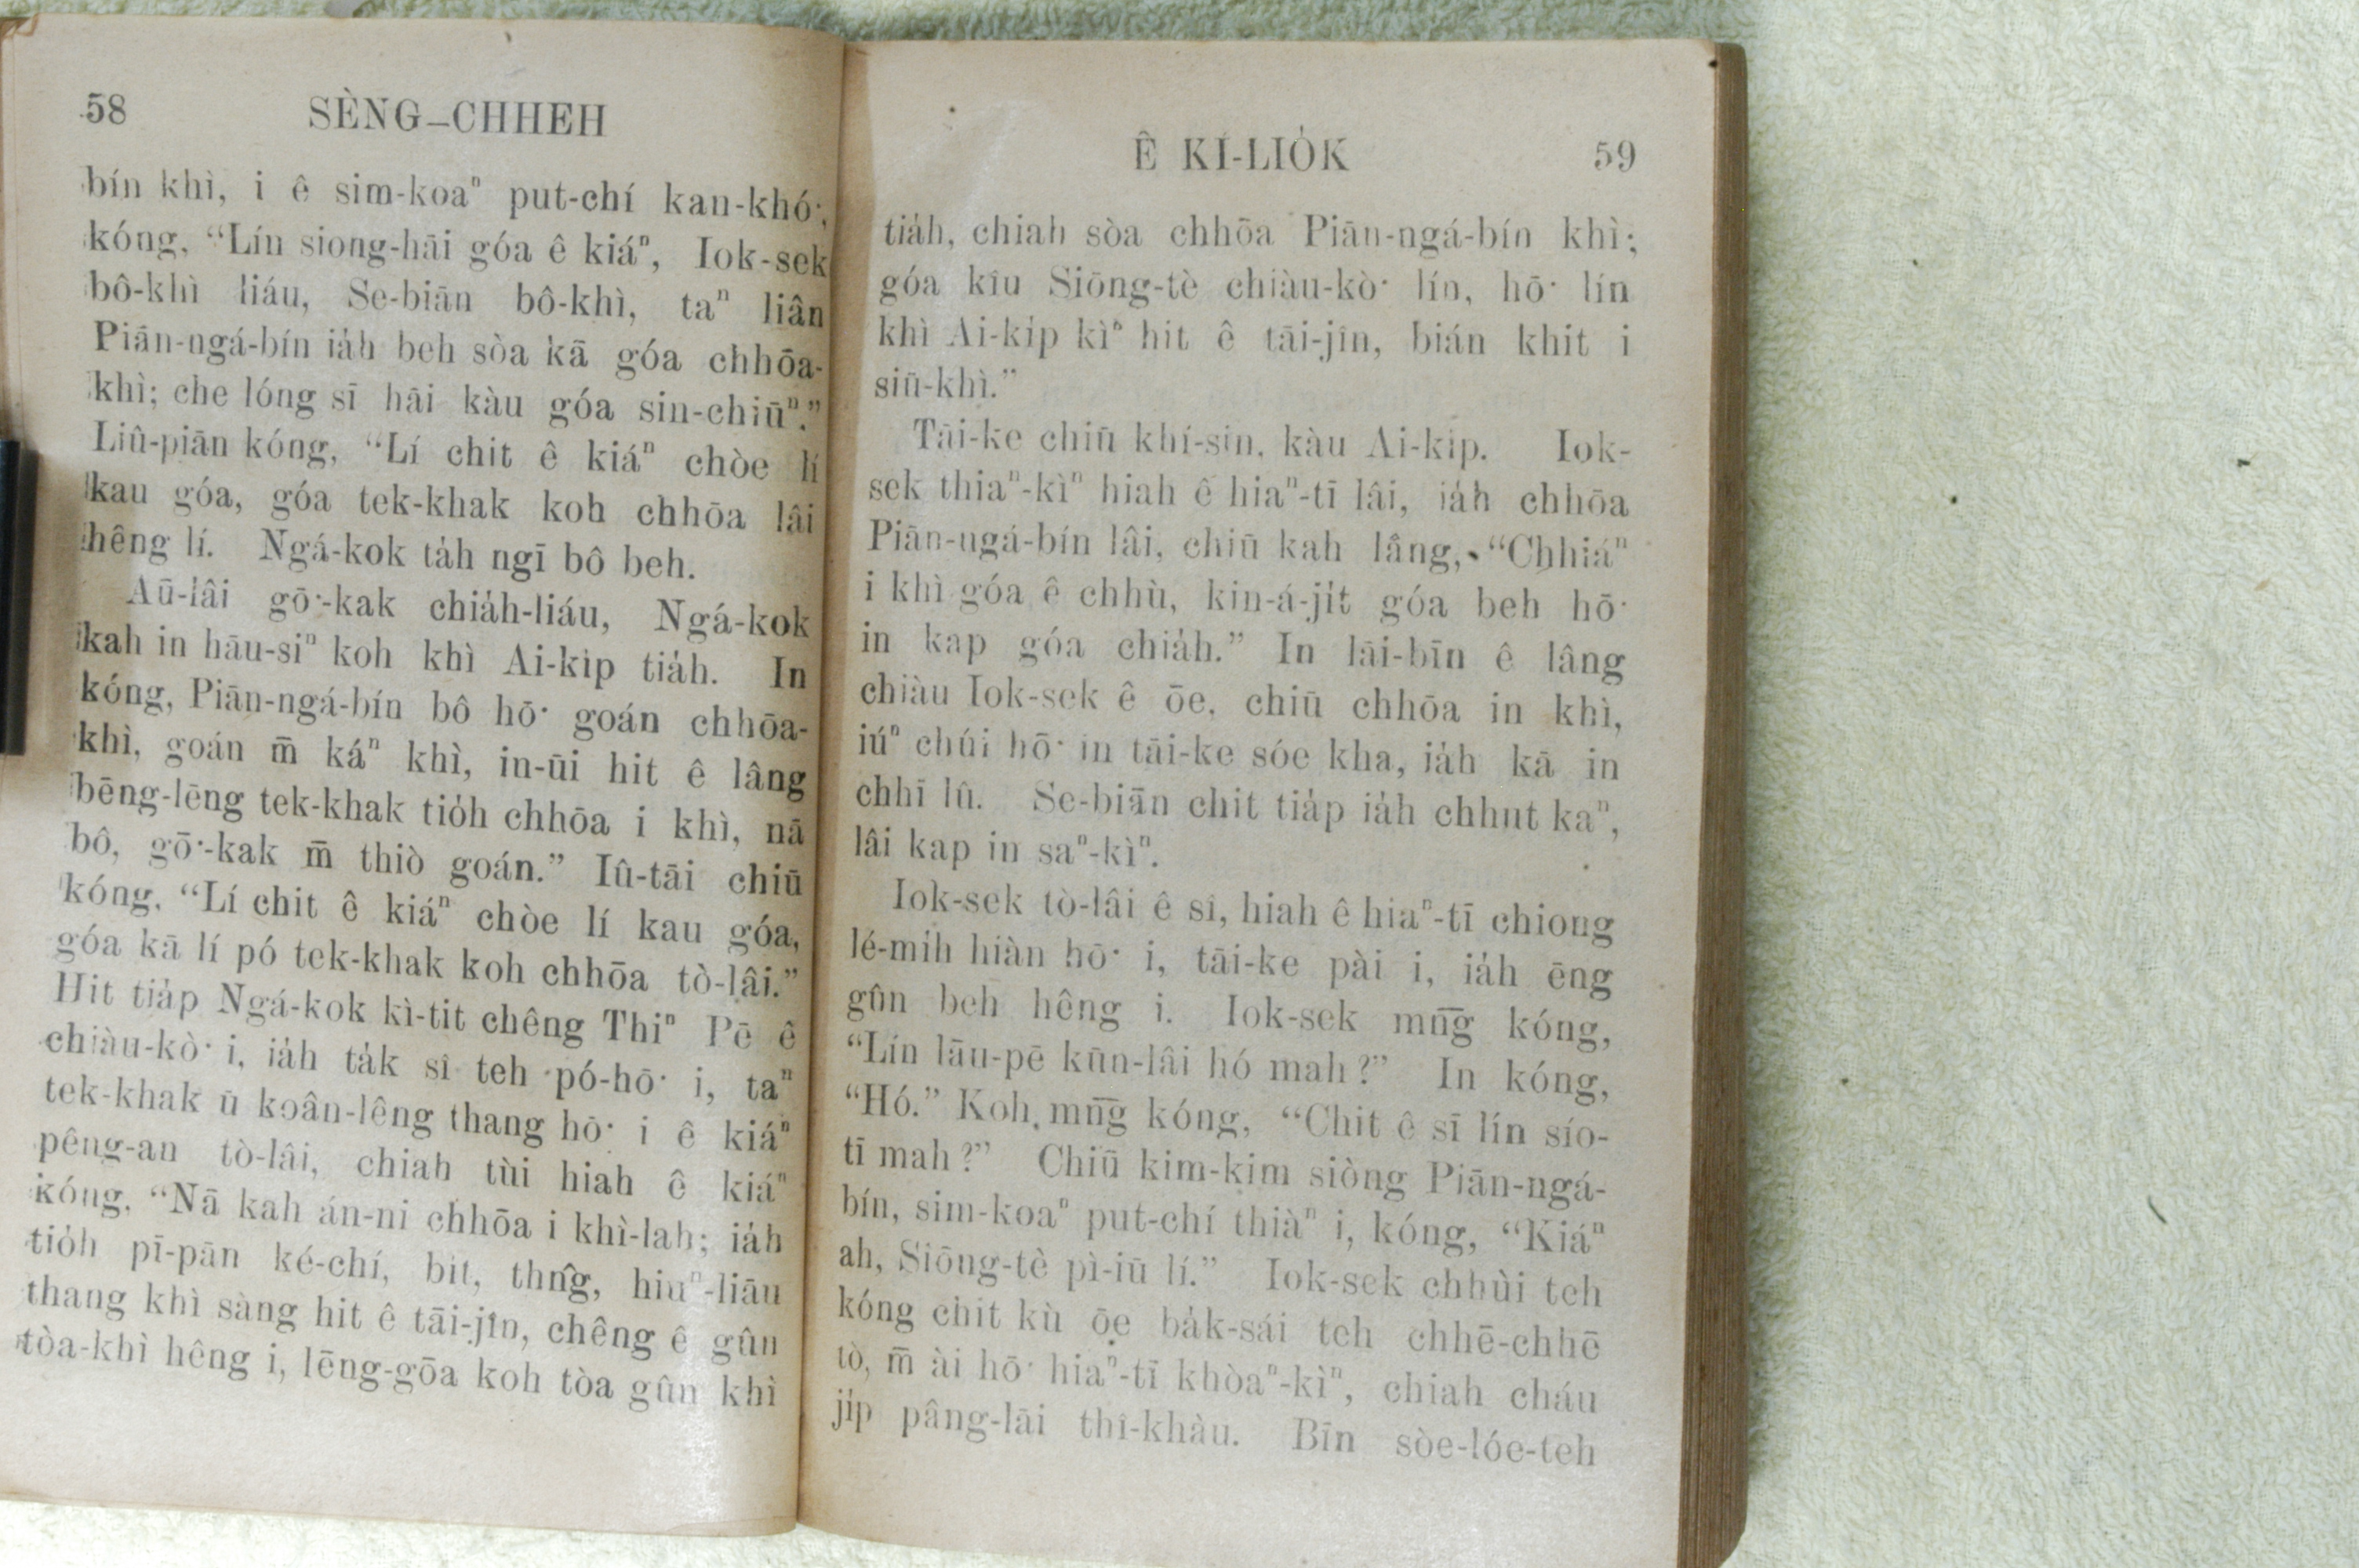 58 SÈNG-CHHEH
bín khì, i ê sim-koaⁿ put-chí kan-khó͘;
kóng, “Lín siong-hāi góa ê kiáⁿ, Iok-sek
bô-khì liáu, Se-biān bô-khì, taⁿ liân
Piān-ngá-bín ia̍h beh sòa kā góa chhōa-
khì; che lóng sī hāi kàu góa sin-chiūⁿ.”
Liû-piān kóng, “Lí chit ê kiáⁿ chòe lí
kau góa, góa tek-khak koh chhōa lâi
hêng lí. Ngá-kok ta̍h ngī bô beh.
Aū-lâi gō͘-kak chia̍h-liáu, Ngá-kok
kah in hāu-siⁿ koh khì Ai-ki̍p tia̍h. In
kóng, Piān-ngá-bín bô hō͘ goán chhōa-
khì, goán m̄ káⁿ khì, in-ūi hit ê lâng
bēng-lēng tek-khak tio̍h chhōa i khì, nā
bô, gō͘-kak m̄ thiò goán.” Iû-tāi chiū
kóng, “Lí chit ê kiáⁿ chòe lí kau góa,
góa kā lí pó tek-khak koh chhōa tò-lâi.”
Hit tia̍p Ngá-kok kì-tit chêng Thiⁿ Pē ê
chiàu-kò͘ i, ia̍h ta̍k sî teh pó-hō͘ i, taⁿ
tek-khak ū koân-lêng thang hō͘ i ê kiáⁿ
pêng-an tò-lâi, chiah tùi hiah ê kiáⁿ
kóng, “Nā kah án-ni chhōa i khì-lah; ia̍h
tio̍h pī-pān ké-chí, bi̍t, thn̂g, hiuⁿ-liāu
thang khì sàng hit ê tāi-jîn, chêng ê gûn
tòa-khì hêng i, lēng-gōa koh tòa gûn khì
Ê KÌ-LIO̍K 59
tia̍h, chiah sòa chhōa Piān-ngá-bín khì;
góa kîu Siōng-tè chiàu-kò͘ lín, hō͘ lín
khì Ai-ki̍p kìⁿ hit ê tāi-jîn, bián khit i
siū-khì.”
Tāi-ke chiū khí-sin, kàu Ai-ki̍p. Iok-
sek thiaⁿ-kìⁿ hiah ê hiaⁿ-tī lâi, ia̍h chhōa
Piān-ngá-bín lâi, chiū kah lâng, “Chhiáⁿ
i khì góa ê chhù, kin-á-ji̍t góa beh hō͘
in kap góa chia̍h.” In lāi-bīn ê lâng
chiàu Iok-sek ê ōe, chiū chhōa in khì,
iúⁿ chúi hō͘ in tāi-ke sóe kha, ia̍h kā in
chhī lû. Se-biān chit tia̍p ia̍h chhut kaⁿ,
lâi kap in saⁿ-kìⁿ.
Iok-sek tò-lâi ê sî, hiah ê hiaⁿ-tī chiong
lé-mi̍h hiàn hō͘ i, tāi-ke pài i, ia̍h ēng
gûn beh hêng i. Iok-sek mn̄g kóng,
“Lín lāu-pē kūn-lâi hó mah?” In kóng,
“Hó.” Koh mn̄g kóng, “Chit ê sī lín sío-
tī mah?” Chiū kim-kim siòng Piān-ngá-
bín, sim-koaⁿ put-chí thiàⁿ i, kóng, “Kiáⁿ
ah, Siōng-tè pì-iū lí.” Iok-sek chhùi teh
kóng chit kù ōe ba̍k-sái teh chhē-chhē
tò, m̄ ài hō͘ hiaⁿ-tī khòaⁿ-kìⁿ, chiah cháu
ji̍p pâng-lāi thî-khàu. Bīn sòe-lóe-teh